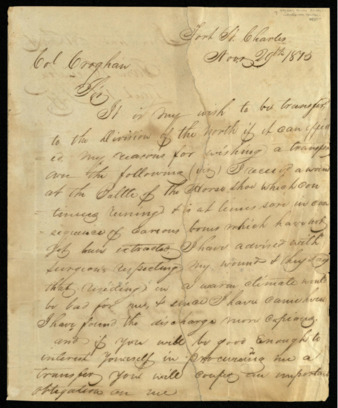 Fort St. Charles
Nov. 29th 1815
Col Croghan
Sir
It is my wish to be transfer
to the division of the north if it can
my reasons for wishing a transfer
are the following (viz)
at the of the which con
tinues runing & is at times sore in con
sequence of carious bones which have not
yet been extracted I have advised with
surgeons respecting my wound & they say
that residing in a warm climate would
be bad for me, & since I have came here
I have found the discharge more copious
and if you will be good enough to
interest yourself in procureing me a
transfer you will confer an important
obligation on me